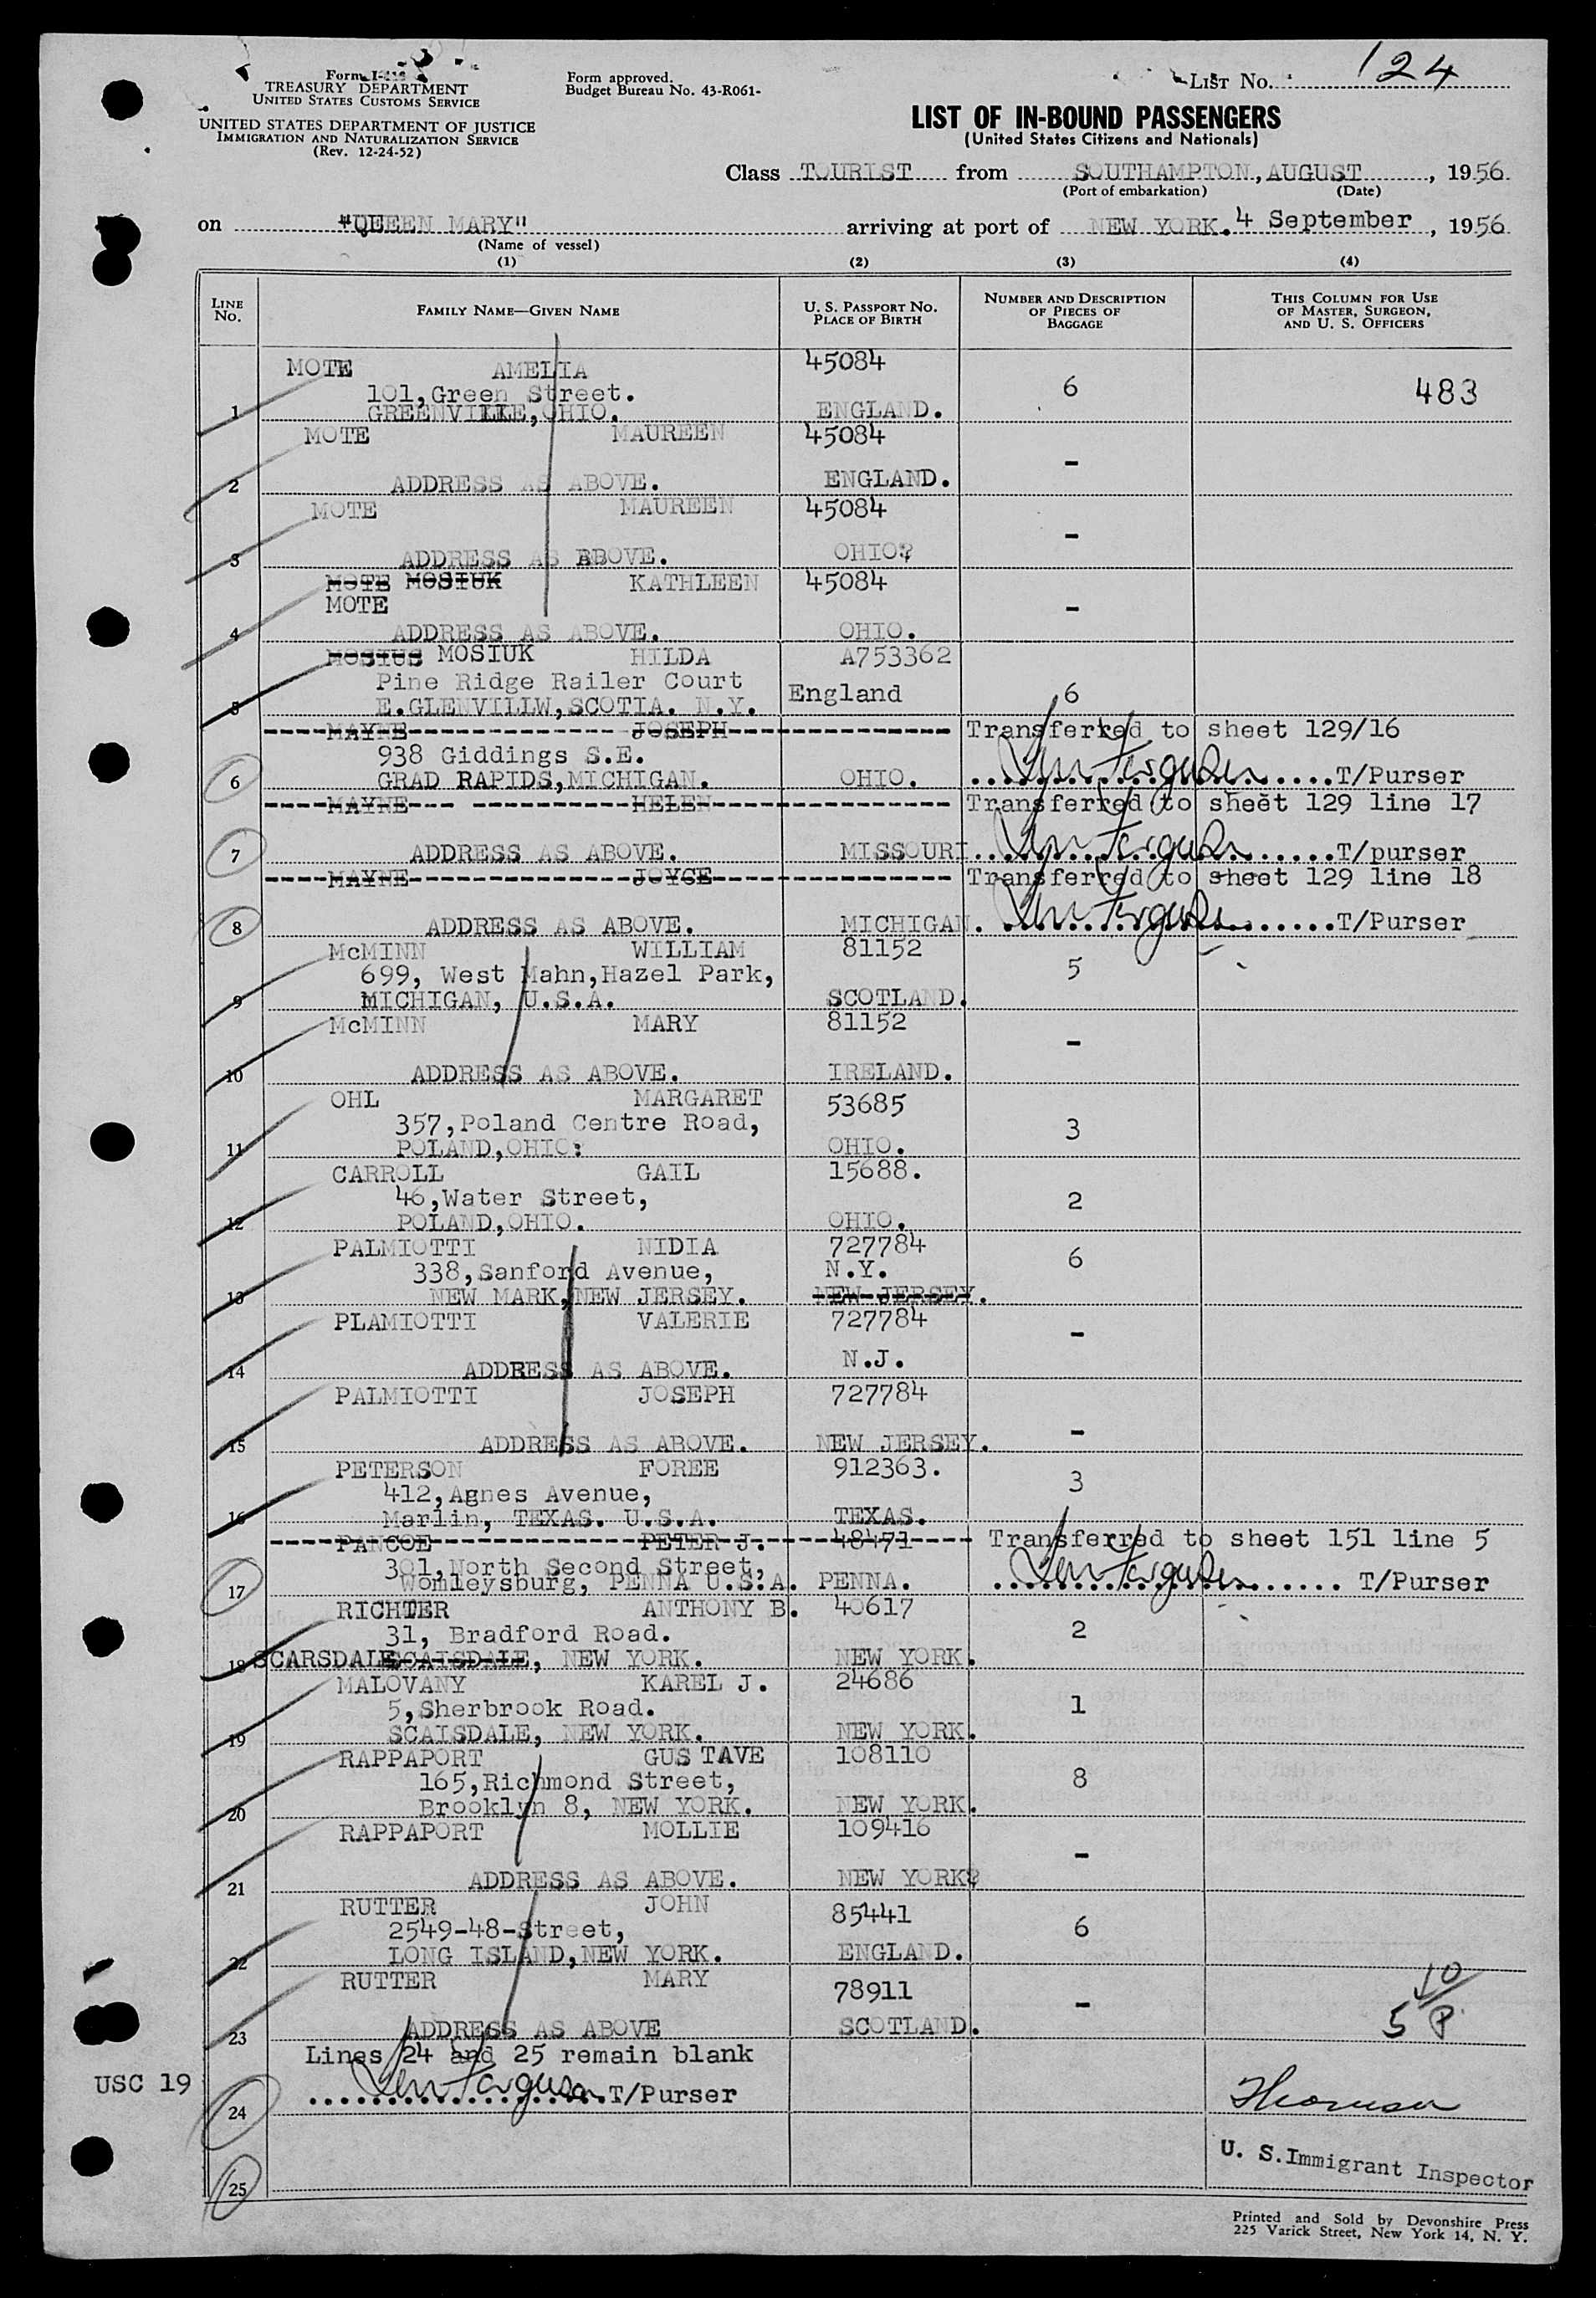 Form I-418
TREASURY DEPARTMENT
UNITED STATES CUSTOMS SERVICE
UNITED STATES DEPARTMENT OF JUSTICE
IMMIGRATION AND NATURALIZATION SERVICE
(Rev. 12-24-52)
Form approved.
Budget Bureau No. 43-R061-
LIST No. 124
LIST OF IN-BOUND PASSENGERS
(United States Citizens and Nationals)
Class TOURIST from SOUTHAMPTON, AUGUST, 1956
(Port of embarkation) (Date)
on "QUEEN MARY" arriving at port of NEW YORK. 4 September, 1956
(Name of vessel)
(1) (2) (3) (4)
LINE No. FAMILY NAME—GIVEN NAME U. S. PASSPORT NO. PLACE OF BIRTH NUMBER AND DESCRIPTION OF PIECES OF BAGGAGE THIS COLUMN FOR USE OF MASTER, SURGEON, AND U. S. OFFICERS
MOTE AMELIA 45084
101,Green Street. 6 483
1 GREENVILLE,OHIO. ENGLAND.
MOTE MAUREEN 45084
-
2 ADDRESS AS ABOVE. ENGLAND.
MOTE MAUREEN 45084
-
3 ADDRESS AS ABOVE. OHIO?
MOTE MOSIUK KATHLEEN 45084
MOTE -
4 ADDRESS AS ABOVE. OHIO.
MOSIUS MOSIUK HILDA A753362
Pine Ridge Railer Court England 6
5 E.GLENVILLW,SCOTIA. N.Y.
MAYNE JOSEPH Transferred to sheet 129/16
938 Giddings S.E.
6 GRAD RAPIDS,MICHIGAN. OHIO. Len Ferguson T/Purser
MAYNE HELEN Transferred to sheet 129 line 17
7 ADDRESS AS ABOVE. MISSOURI Len Ferguson T/purser
MAYNE JOYCE Transferred to sheet 129 line 18
8 ADDRESS AS ABOVE. MICHIGAN. Len Ferguson T/Purser
McMINN WILLIAM 81152
699, West Mahn,Hazel Park, 5
9 MICHIGAN, U.S.A. SCOTLAND.
McMINN MARY 81152
-
10 ADDRESS AS ABOVE. IRELAND.
OHL MARGARET 53685
357,Poland Centre Road, 3
11 POLAND,OHIO: OHIO.
CARROLL GAIL 15688.
46,Water Street, 2
12 POLAND,OHIO. OHIO.
PALMIOTTI NIDIA 727784
338,Sanford Avenue, N.Y. 6
13 NEW MARK,NEW JERSEY. NEW JERSEY.
PLAMIOTTI VALERIE 727784
N.J. -
14 ADDRESS AS ABOVE.
PALMIOTTI JOSEPH 727784
15 ADDRESS AS ABOVE. NEW JERSEY. -
PETERSON FOREE 912363.
412,Agnes Avenue, 3
16 Marlin, TEXAS. U.S.A. TEXAS.
PANCOE PETER J. 48471 Transferred to sheet 151 line 5
301,North Second Street,
17 Womleysburg, PENNA U.S.A. PENNA. Len Ferguson T/Purser
RICHTER ANTHONY B. 40617
31, Bradford Road. 2
18 SCARSDALE SCAISDALE, NEW YORK. NEW YORK.
MALOVANY KAREL J. 24686
5,Sherbrook Road. 1
19 SCAISDALE, NEW YORK. NEW YORK.
RAPPAPORT GUSTAVE 108110
165,Richmond Street, 8
20 Brooklyn 8, NEW YORK. NEW YORK.
RAPPAPORT MOLLIE 109416
-
21 ADDRESS AS ABOVE. NEW YORK?
RUTTER JOHN 85441
2549-48-Street, 6
22 LONG ISLAND,NEW YORK. ENGLAND.
RUTTER MARY 78911
- 10
5 P
23 ADDRESS AS ABOVE SCOTLAND.
Lines 24 and 25 remain blank
USC 19
Len Ferguson T/Purser
24 Thomson
U. S. Immigrant Inspector
25
Printed and Sold by Devonshire Press
225 Varick Street, New York 14, N. Y.